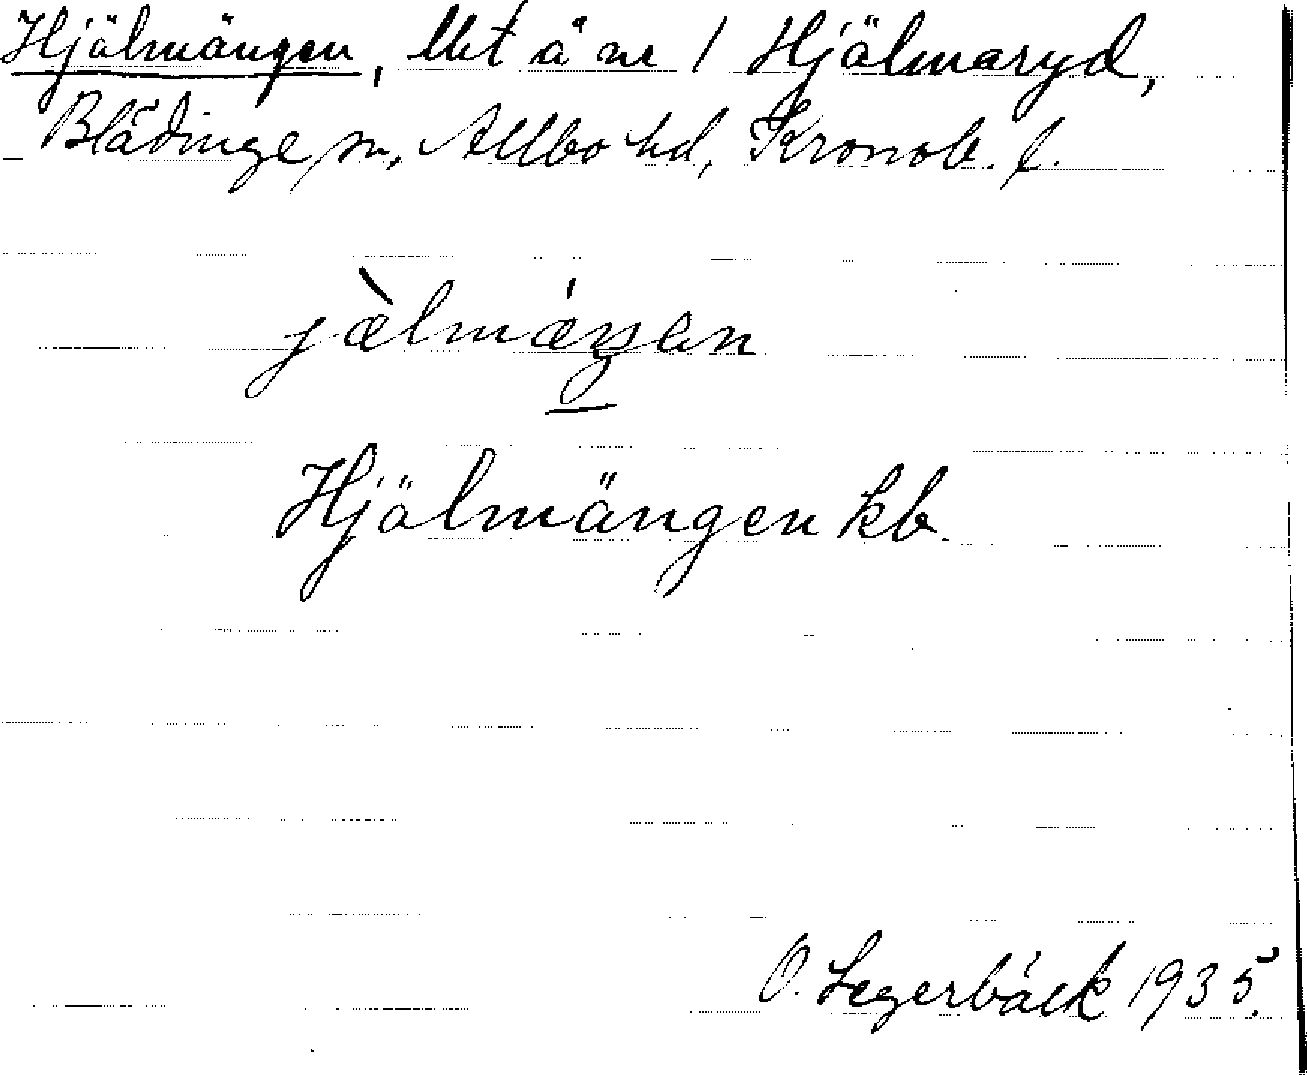 Hjälmängen, lht å nr 1 Hjälmaryd,
Blädinge sn, Allbo hd, Kronob. l.
jæ̀lmǽŋən
Hjälmängen kb.
O. Legerbäck 1935.